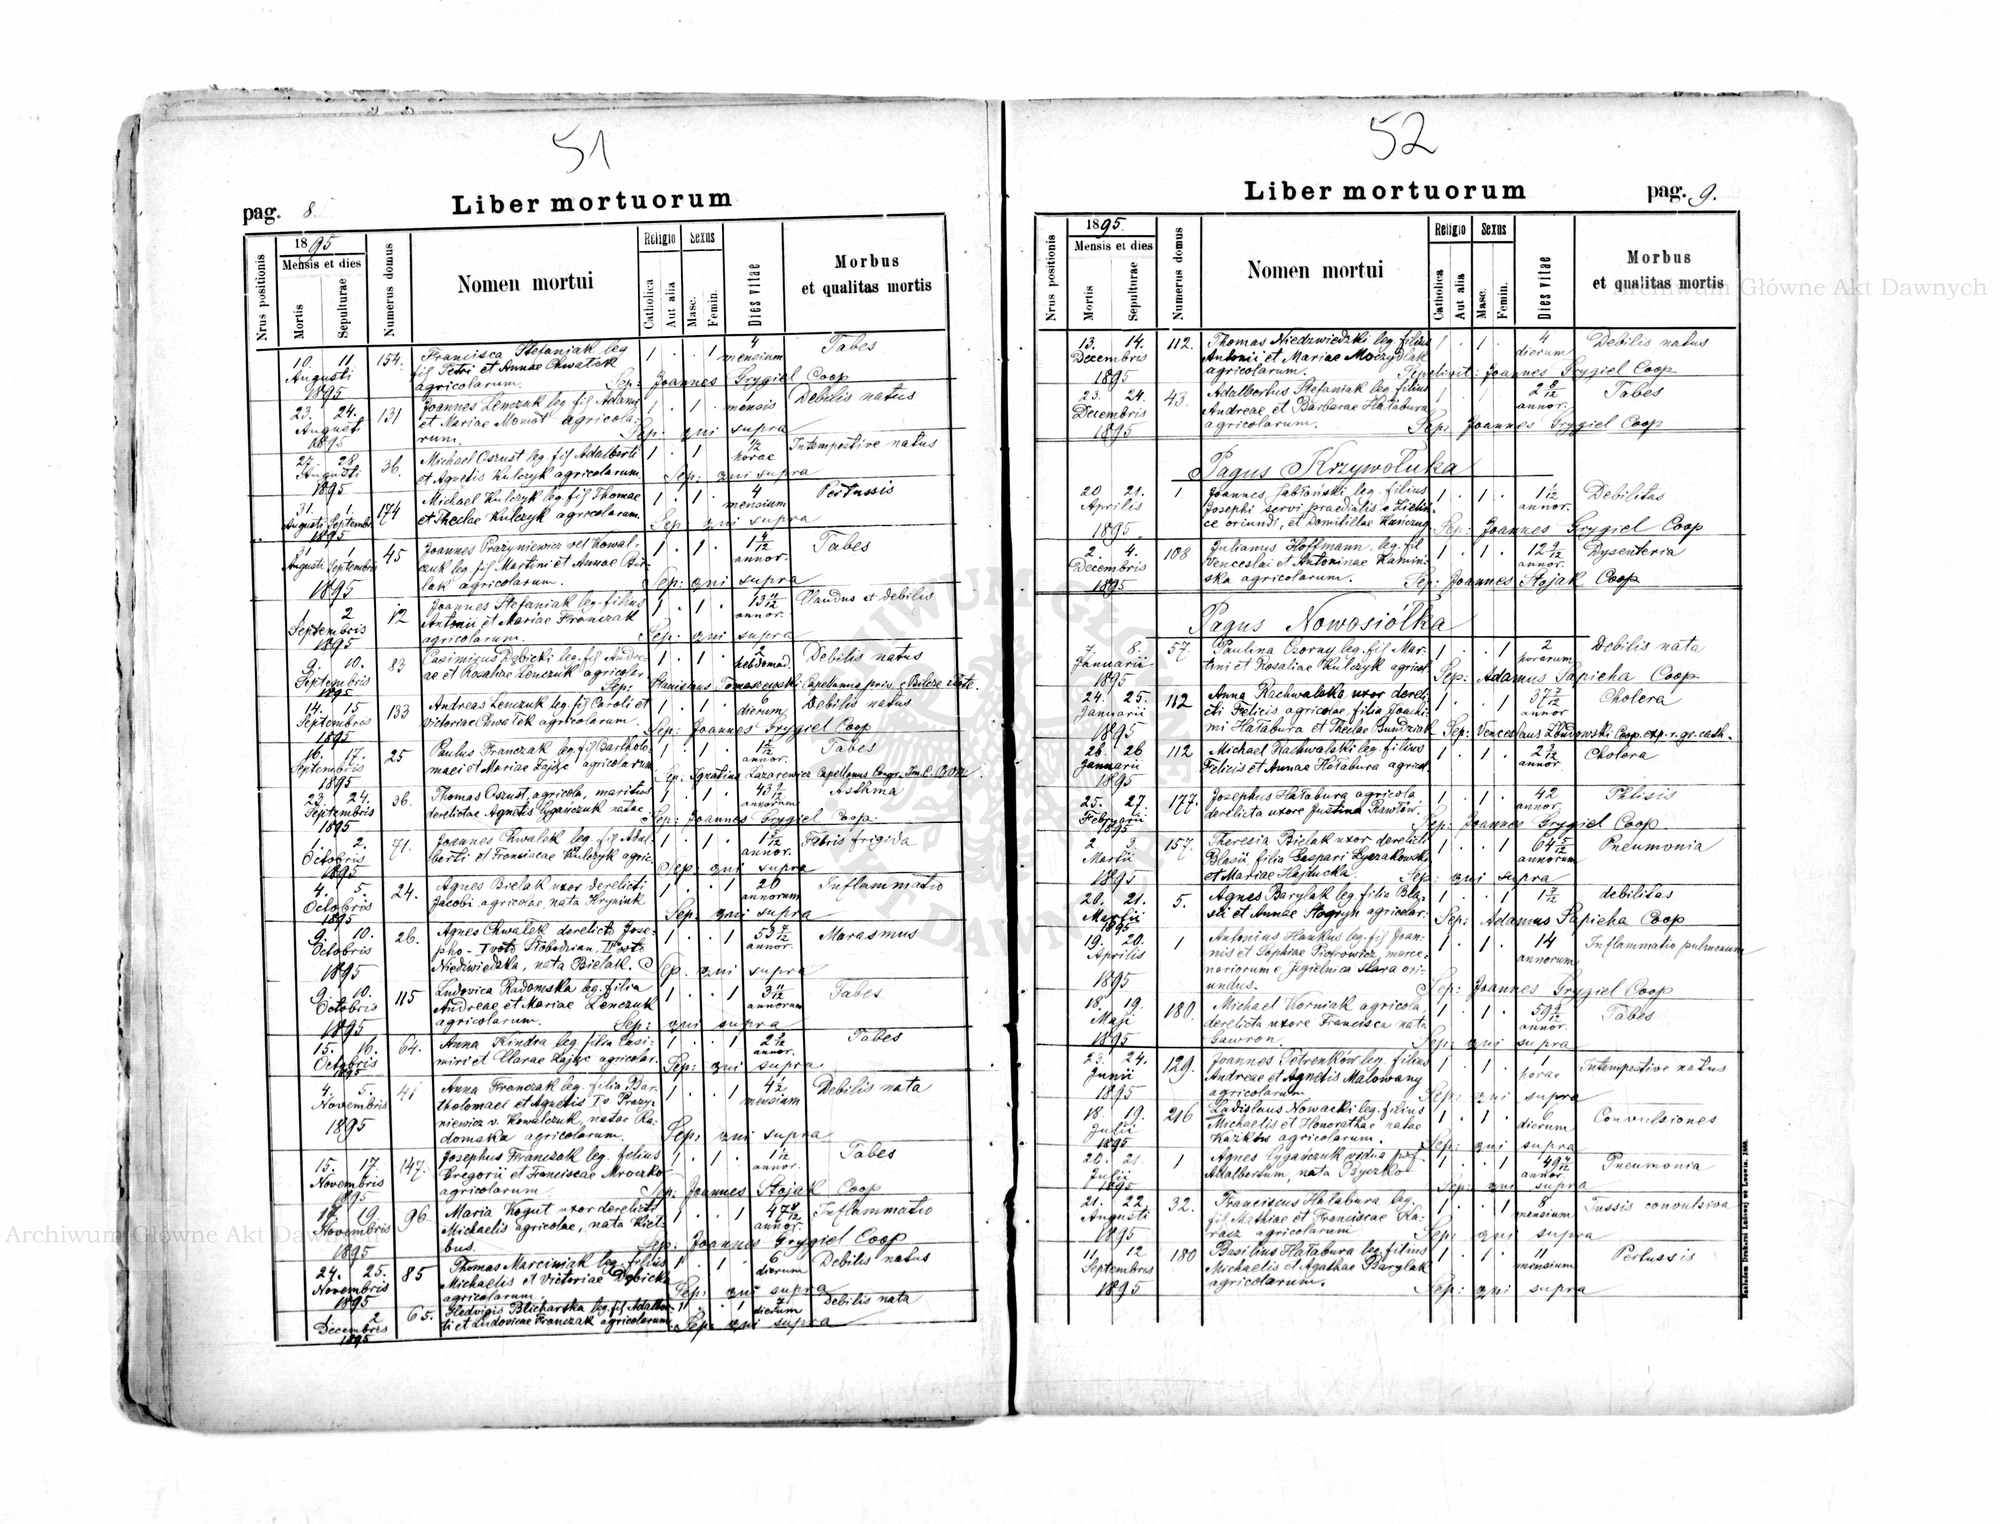 51
Liber mortuorum
pag. 8.
Nrus positionis
1895
Mensis et dies
Mortis
Sepulturae
Numerus domus
Nomen mortui
Religio
Catholica
Aut alia
Sexus
Masc.
Femin.
Dies vitae
Morbus
et qualitas mortis
10. 11. 154. Francisca Stefaniak leg 1 . . 1 4 Tabes
Augusti fil Petri et Annae Chwałek mensium
1895 agricolarum. Sep: Joannes Grygiel Coop
23. 24. 131 Joannes Lenczuk leg fil Adami 1 . 1 . 1 Debilis natus
Augusti et Mariae Momot agricola- mensis
1895 rum. Sep: qui supra
27. 28 36. Michael Oszust leg. fil Adalberti 1 . 1 1/2 Intempestive natus
Augusti et Agnetis Kulczyk agricolarum. horae
1895 Sep: qui supra
31. 1. 174 Michael Kulczyk leg. fil Thomae 1 . 1 . 4 Pertussis
Augusti Septembr et Theclae Kulczyk agricolarum. mensium
1895 Sep: qui supra
31 1 45 Joannes Prażyniewicz vel Kowal- 1 . 1 . 1 4/12 Tabes
Augusti Septembris czuk leg fil Martini et Annae Bie- annor.
1895 lak agricolarum. Sep: qui supra
1 2 12 Joannes Stefaniak leg. filius 1 . 1 . Claudus et debilis
Septembris Antonii et Mariae Franczak annor.
1895 agricolarum. Sep: qui supra
9. 10. 83 Casimirus Dębicki leg. fil Andre- 1 . 1 . 2 Debilis natus
Septembris ae et Rosaliae Lenczuk agricolar. hebdomad.
1895 Sep: Stanislaus Tomaszewski Capellanus priv. e Bilcze złote.
14. 15 133 Andreas Lenczuk leg. fil Caroli et 1 . 1 . 6 Debilis natus
Septembris Victoriae Chwałek agricolarum. dierum
1895 Sep: Joannes Grygiel Coop
16. 17. 25 Paulus Franczak leg. fil Bartholo- 1 . 1 . Tabes
Septembris maei et Mariae Zając agricolarum annor.
1895 Sep: Ignatius Lazarewicz Capellanus Congr. Im. C. B.V.M.
23. 24. 36. Thomas Oszust, agricola, maritus 1 . 1 . Asthma
Septembris derelictae Agnetis Cygańczuk natae annorum
1895 Sep: Joannes Grygiel Coop.
1. 2. 71. Joannes Chwałek leg. fil Adal- 1 . 1 . Febris frigida
Octobris berti et Franciscae Kulczyk agric. annor.
1895 Sep. qui supra
4. 5. 24. Agnes Bielak uxor derelicti 1 . . 1 20 Inflammatio
Octobris Jacobi agricolae, nata Hryniuk annorum
1895 Sep: qui supra
9. 10. 26. Agnes Chwałek derelicta Jose- 1 . . 1 Marasmus
Octobris pho - I voto Słobodzian, II voto annor.
1895 Niedźwiedzka, nata Bielak. Sep. qui supra
9. 10. 115 Ludovica Radomska leg. filia 1 . . 1 3 11/12 Tabes
Octobris Andreae et Mariae Lenczuk annorum
1895 agricolarum. Sep: qui supra
15. 16. 64. Anna Kindra leg. filia Casi- 1 . . 1 Tabes
Octobris miri et Clarae Zając agricolar. annor.
1895 Sep: qui supra
4. 5. 41 Anna Franczak leg. filia Bar- 1 . . 1 4 1/2 Debilis nata
Novembris tholomaei et Agnetis I v. Prazy- mensium
1895 niewicz v. Kowalczuk, natae Ra-
domska agricolarum. Sep: qui supra
15. 17. 147. Josephus Franczak leg. filius 1 . 1 . 1 1/12 Tabes
Novembris Gregorii et Franciscae Mroczko annor.
1895 agricolarum Sep: Joannes Stojak Coop
18. 19. 96 Maria Kogut uxor derelicti 1 . . 1 Inflammatio
Novembris Michaelis agricolae, nata Kieł- annor.
1895 bus. Sep: Joannes Grygiel Coop
24. 25. 85 Thomas Marciniak leg. filius 1 . 1 . 6 Debilis natus
Novembris Michaelis et Victoriae Dębicka dierum
1895 agricolarum. Sep: qui supra
2 65. Hedvigis Blicharska leg. fil Adalber- 1 . . 1 Debilis nata
Decembris ti et Ludovicae Franczak agricolarum. dierum
1895 Sep: qui supra
52
Liber mortuorum
pag. 9.
Nrus positionis
1895.
Mensis et dies
Mortis
Sepulturae
Numerus domus
Nomen mortui
Religio
Catholica
Aut alia
Sexus
Masc.
Femin.
Dies vitae
Morbus
et qualitas mortis
13. 14. 112. Thomas Niedzwiedzki leg. filius 1 . 1 . 4 Debilis natus
Decembris Antonii et Mariae Moczydłak dierum
1895 agricolarum. Sepelivit: Joannes Grygiel Coop
23. 24. 43. Adalbertus Stefaniak leg. filius 1 . 1 Tabes
Decembris Andreae et Barbarae Hałabura annor.
1895 agricolarum. Sep: Joannes Grygiel Coop
Pagus Krzywołuka
20 21. 1 Joannes Jabłoński leg. filius 1 . 1 . 1 1/12 Debilitas
Aprilis Josephi servi praedialis e Zielin- annor.
1895 ce oriundi, et Domitillae Kańczug Sep: Joannes Grygiel Coop
2. 4. 108 Julianus Hoffmann. leg. fil 1 . 1 . Dysenteria
Decembris Venceslai et Antoninae Kamiń- annor.
1895 ska agricolarum. Sep: Joannes Stojak Coop
Pagus Nowosiółka
7. 8. 57. Paulina Czorny leg. fil Mar- 1 . . 1 2 Debilis nata
Januarii tini et Rosaliae Kulczyk agricol. horarum
Sep: Adamus Sapieha Coop
24. 25. 112 Anna Rachwalska uxor dereli- 1 . . 1 37 7/12 Cholera
Januarii cti Felicis agricolae, filia Joachi- annor
1895 mi Hałabura et Theclae Bundziak Sep: Venceslaus Zbudowski Coop. exp. r. gr. cath.
26. 26 112 Michael Rachwalski leg. filius 1 . 1 . Cholera
Januarii Felicis et Annae Hałabura agricol. annor.
1895
25. 27. 177. Josephus Hałabura agricola 1 . 1 . 42 Phtisis
Februarii derelicta uxore Justina Pawłow annor.
1895 Sep: Joannes Grygiel Coop.
2 3. 157. Theresia Bielak uxor derelicti 1 . . 1 64 5/12 Pneumonia
Martii Blasii filia Gaspari Łyczakowski annorum
1895 et Mariae Hajducka. Sep: qui supra
20. 21. 5. Agnes Barylak leg. filia Bla- 1 . . 1 1 7/12 debilitas
Martii sii et Annae Stogryn agricolar.
1895 Sep: Adamus Sapieha Coop
19. 20. 1 Antonius Hankus leg. fil Joan- 1 . 1 . 14 Inflammatio pulmonum
Aprilis nis et Sophiae Piotrowicz merce- annorum
1895 nariorum e Jagielnica stara ori-
undus. Sep: Joannes Grygiel Coop
18. 19. 180. Michael Korniak agricola, 1 . 1 . Tabes
Maji derelicta uxore Francisca nata annor.
1895 Gawron. Sep: qui supra
23. 24. 129. Joannes Petrenków leg. filius 1 . 1 . 1 Intempestive natus
Junii Andreae et Agnetis Malowany horae
1895 agricolarum Sep: qui supra
18. 19. 216 Ladislaus Nowacki leg. filius 1 . 1 . 6 Convulsiones
Julii Michaelis et Honorathae natae dierum
1895 Kazików agricolarum. Sep: qui supra
20. 21. 1 Agnes Cygańczuk vidua post 1 . . 1 Pneumonia
Julii Adalbertum, nata Psyczko annor.
1895 Sep: qui supra
21. 22. 32. Franciscus Hałabura leg. 1 . . 1 8 Tussis convulsiva
Augusti fil Mathiae et Franciscae Ka- mensium
1895 racz agricolarum Sep: qui supra
11. 12 180 Basilius Hałabura leg. filius 1 . 1 . 11 Pertussis
Septembris Michaelis et Agathae Barylak mensium
1895 agricolarum. Sep: qui supra
Archiwum Główne Akt Dawnych
Archiwum Główne Akt Dawnych